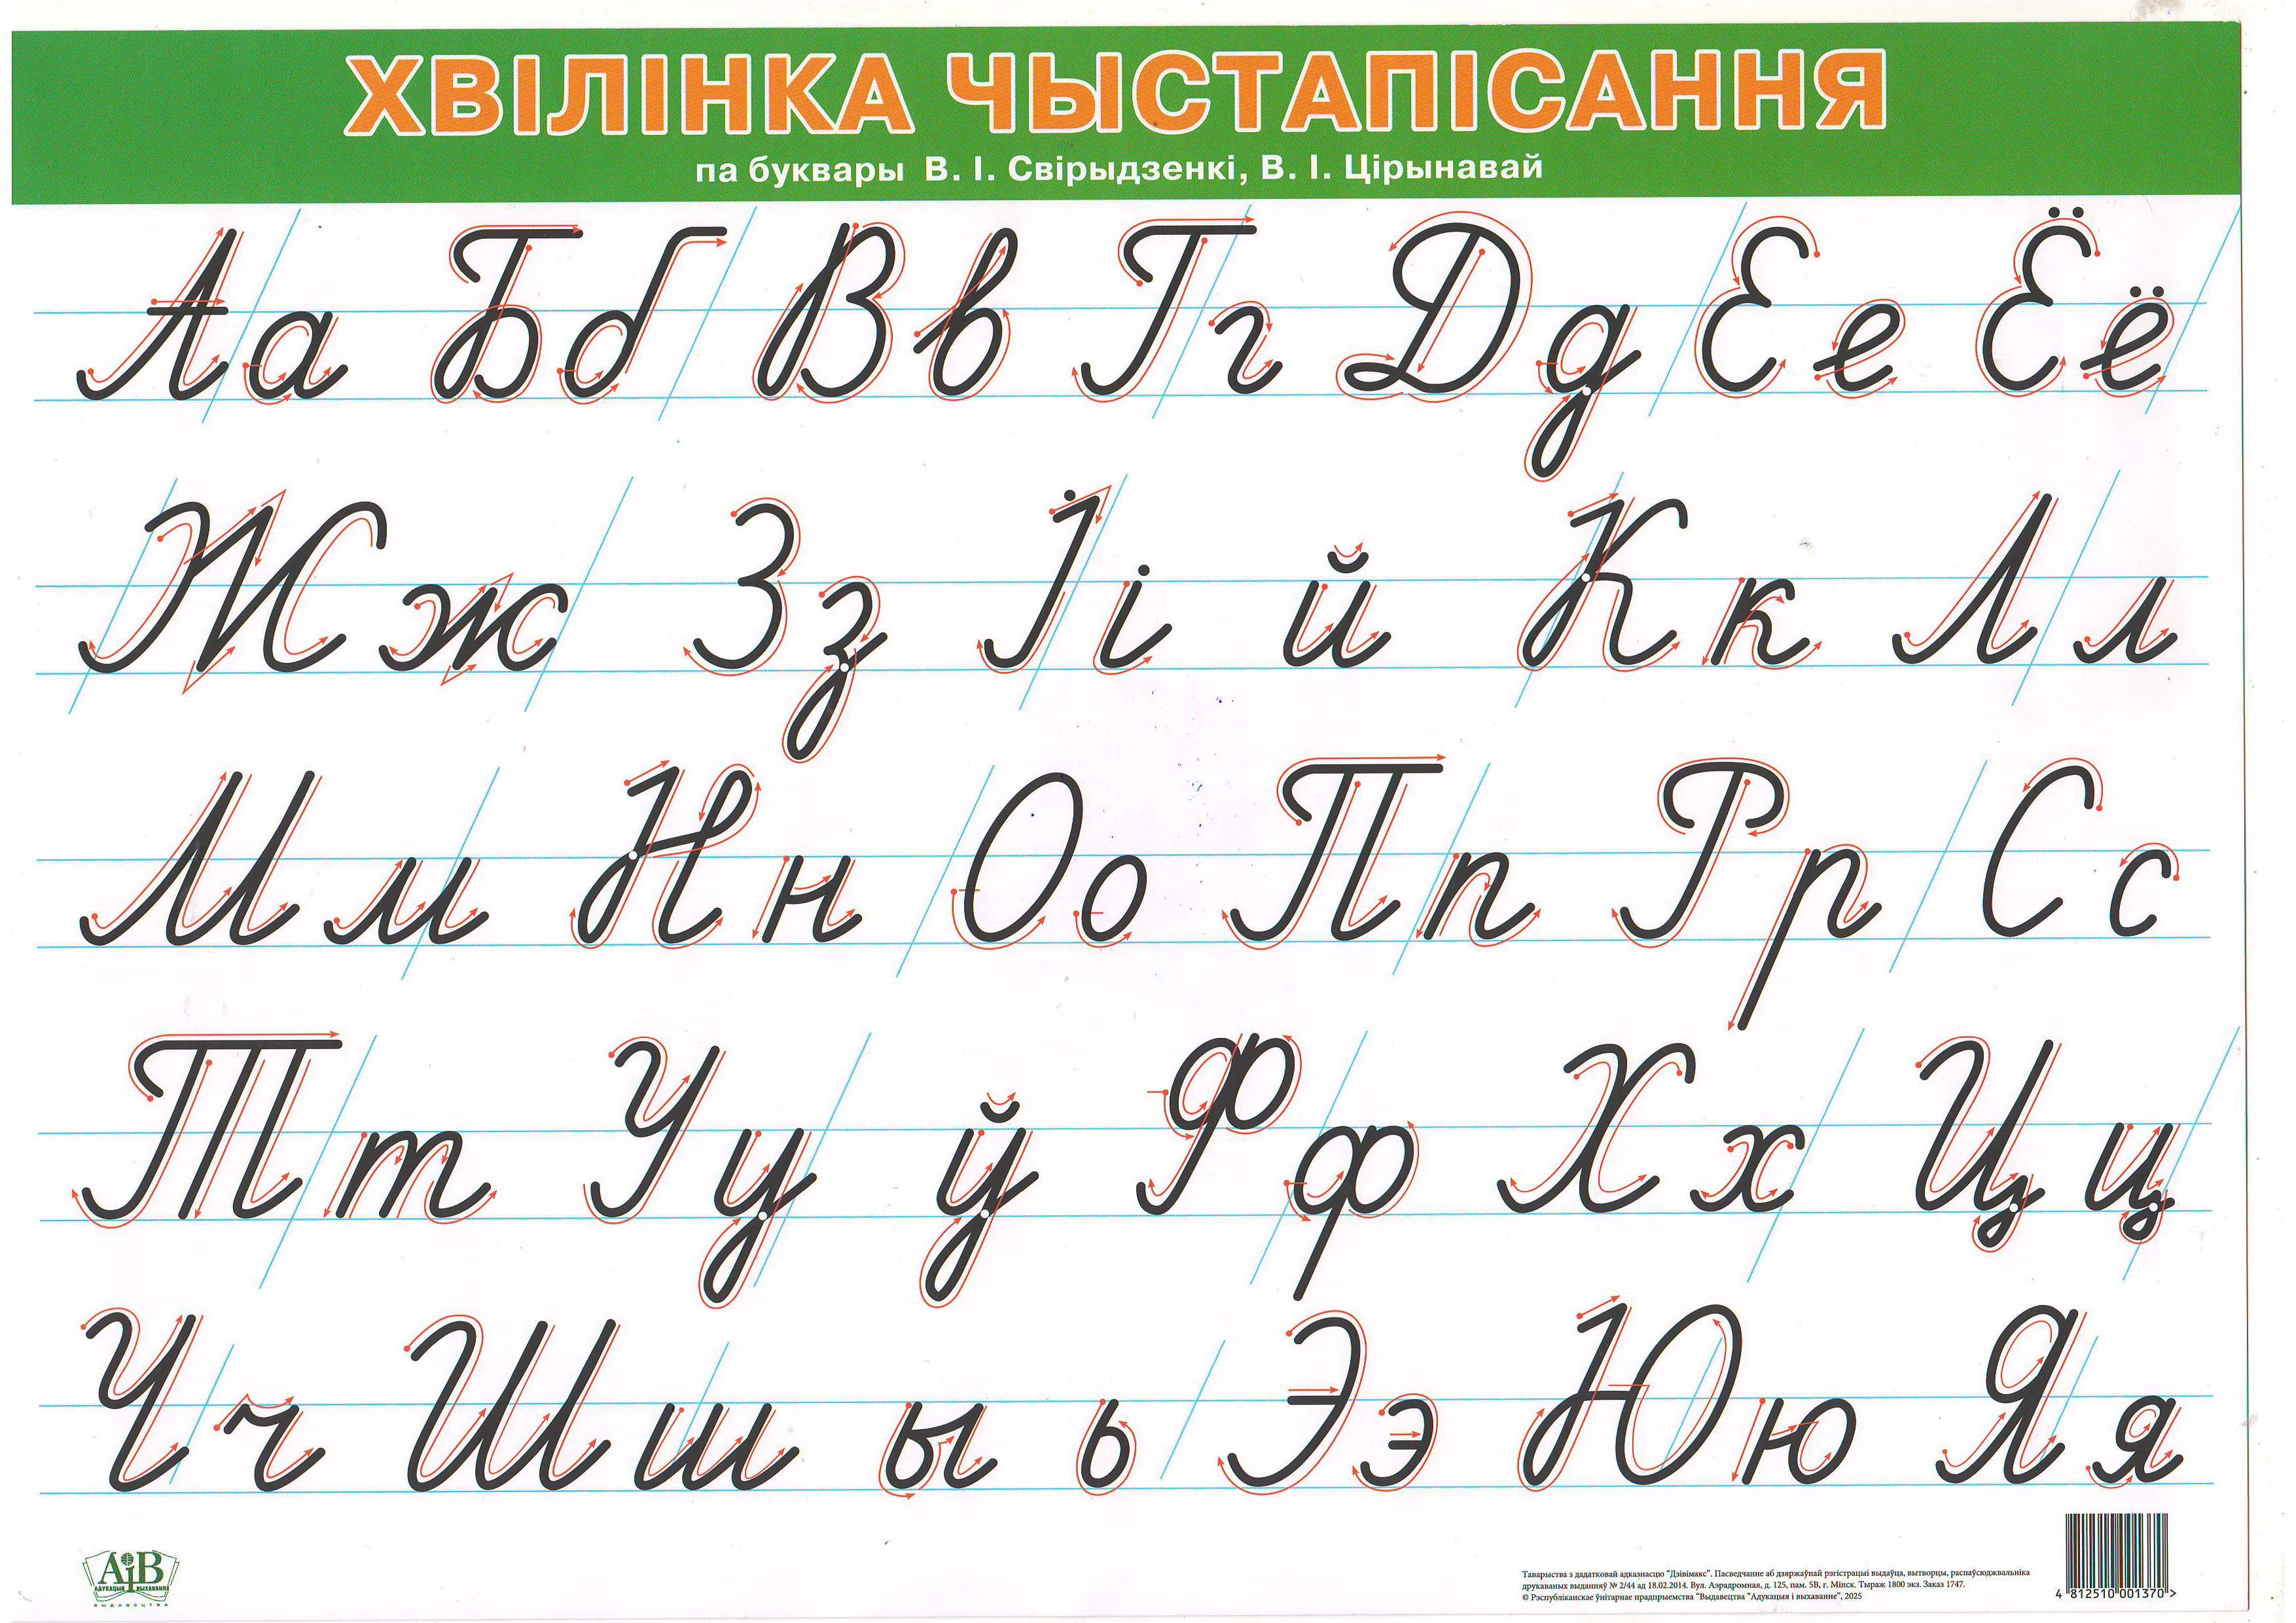 ХВІЛІНКА ЧЫСТАПІСАННЯ
па буквары В. І. Свірыдзенкі, В. І. Цірынавай
Аа Бб Вв Гг Дд Ее Ёё
Жж Зз Іі й Кк Лл
Мм Нн Оо Пп Рр Сс
Тт Уу ў Фф Хх Цц
Чч Шш ы ь Ээ Юю Яя
АіВ
АДУКАЦЫЯ ВЫХАВАННЕ
ВЫДАВЕЦТВА
Таварыства з дадатковай адказнасцю "Дзівімакс". Пасведчанне аб дзяржаўнай рэгістрацыі выдаўца, вытворцы, распаўсюджвальніка
друкаваных выданняў № 2/44 ад 18.02.2014. Вул. Аэрадромная, д. 125, пам. 5В, г. Мінск. Тыраж 1800 экз. Заказ 1747.
© Рэспубліканскае ўнітарнае прадпрыемства "Выдавецтва "Адукацыя і выхаванне", 2025
4 812510 001370 >